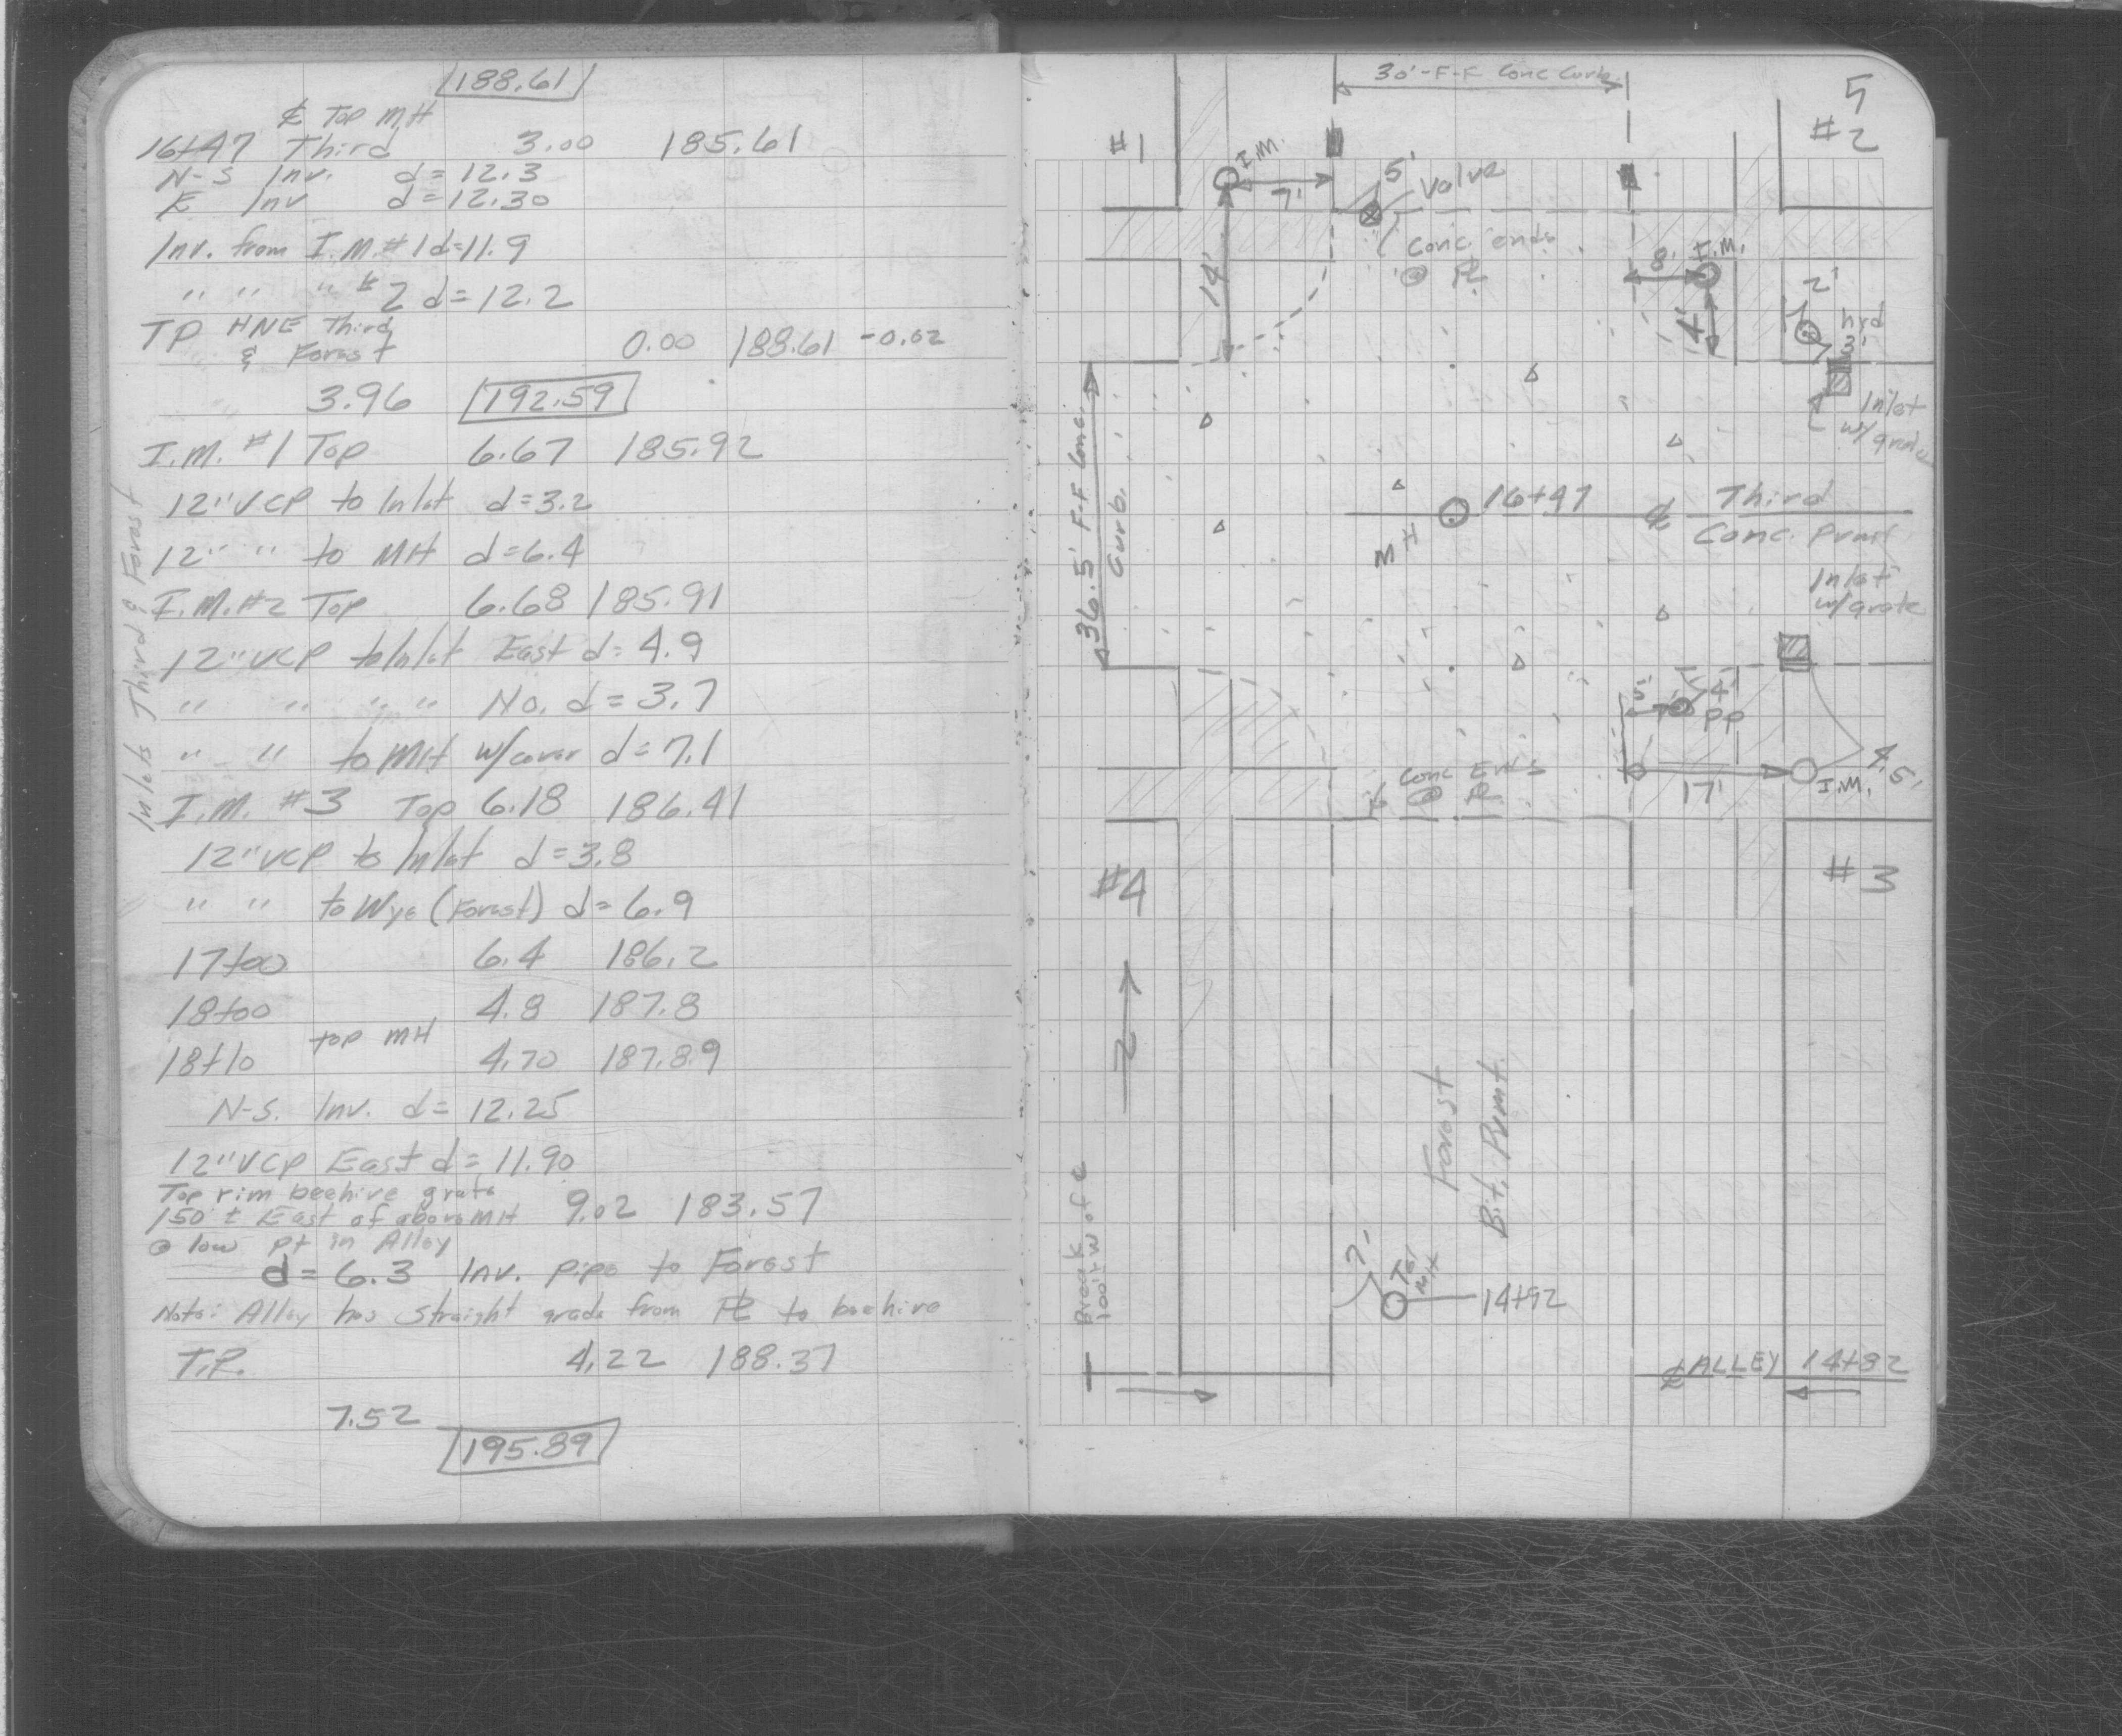 188.61
℄ Top MH
16+47 Third 3.00 185.61
N-S Inv. d=12.3
E Inv d=12.30
Inv. from I.M.#1 d=11.9
" " " #2 d=12.2
TP HNE Third
& Forest 0.00 188.61 -0.02
3.96 192.59
I.M. #1 Top 6.67 185.92
12" VCP to Inlet d=3.2
12" " to MH d=6.4
I.M.#2 Top 6.68 185.91
12" VCP to Inlet East d=4.9
" " " " No. d=3.7
" " to MH w/cover d=7.1
I.M. #3 Top 6.18 186.41
12" VCP to Inlet d=3.8
" " to Wye (Forest) d=6.9
Inlets Third & Forest
17+00 6.4 186.2
18+00 4.8 187.8
top MH
18+10 4.70 187.89
N-S. Inv. d= 12.25
12" VCP East d= 11.90
Top rim beehive grate
150'± East of above MH 9.02 183.57
@ low pt in Alley
d= 6.3 Inv. pipe to Forest
Note: Alley has straight grade from PL to beehive
T.P. 4.22 188.37
7.52
195.89
5
30'-F-F Conc Curb.
#1
#2
I.M.
7'
5'
Valve
Conc. ends
@ PL
14'
8'
I.M.
4'
2'
hyd
3'
Inlet
w/grate
36.5' F-F Conc.
Curb.
16+47
℄ Third
MH
Conc. Pvmt
Inlet
w/grate
5'
4'
PP
Conc Ends
@ PL
17'
I.M.
4.5'
#4
#3
N
Forest
Bit. Pvmt.
Break
100'± W of ℄
7'
Tel
MH
14+92
℄ ALLEY 14+82